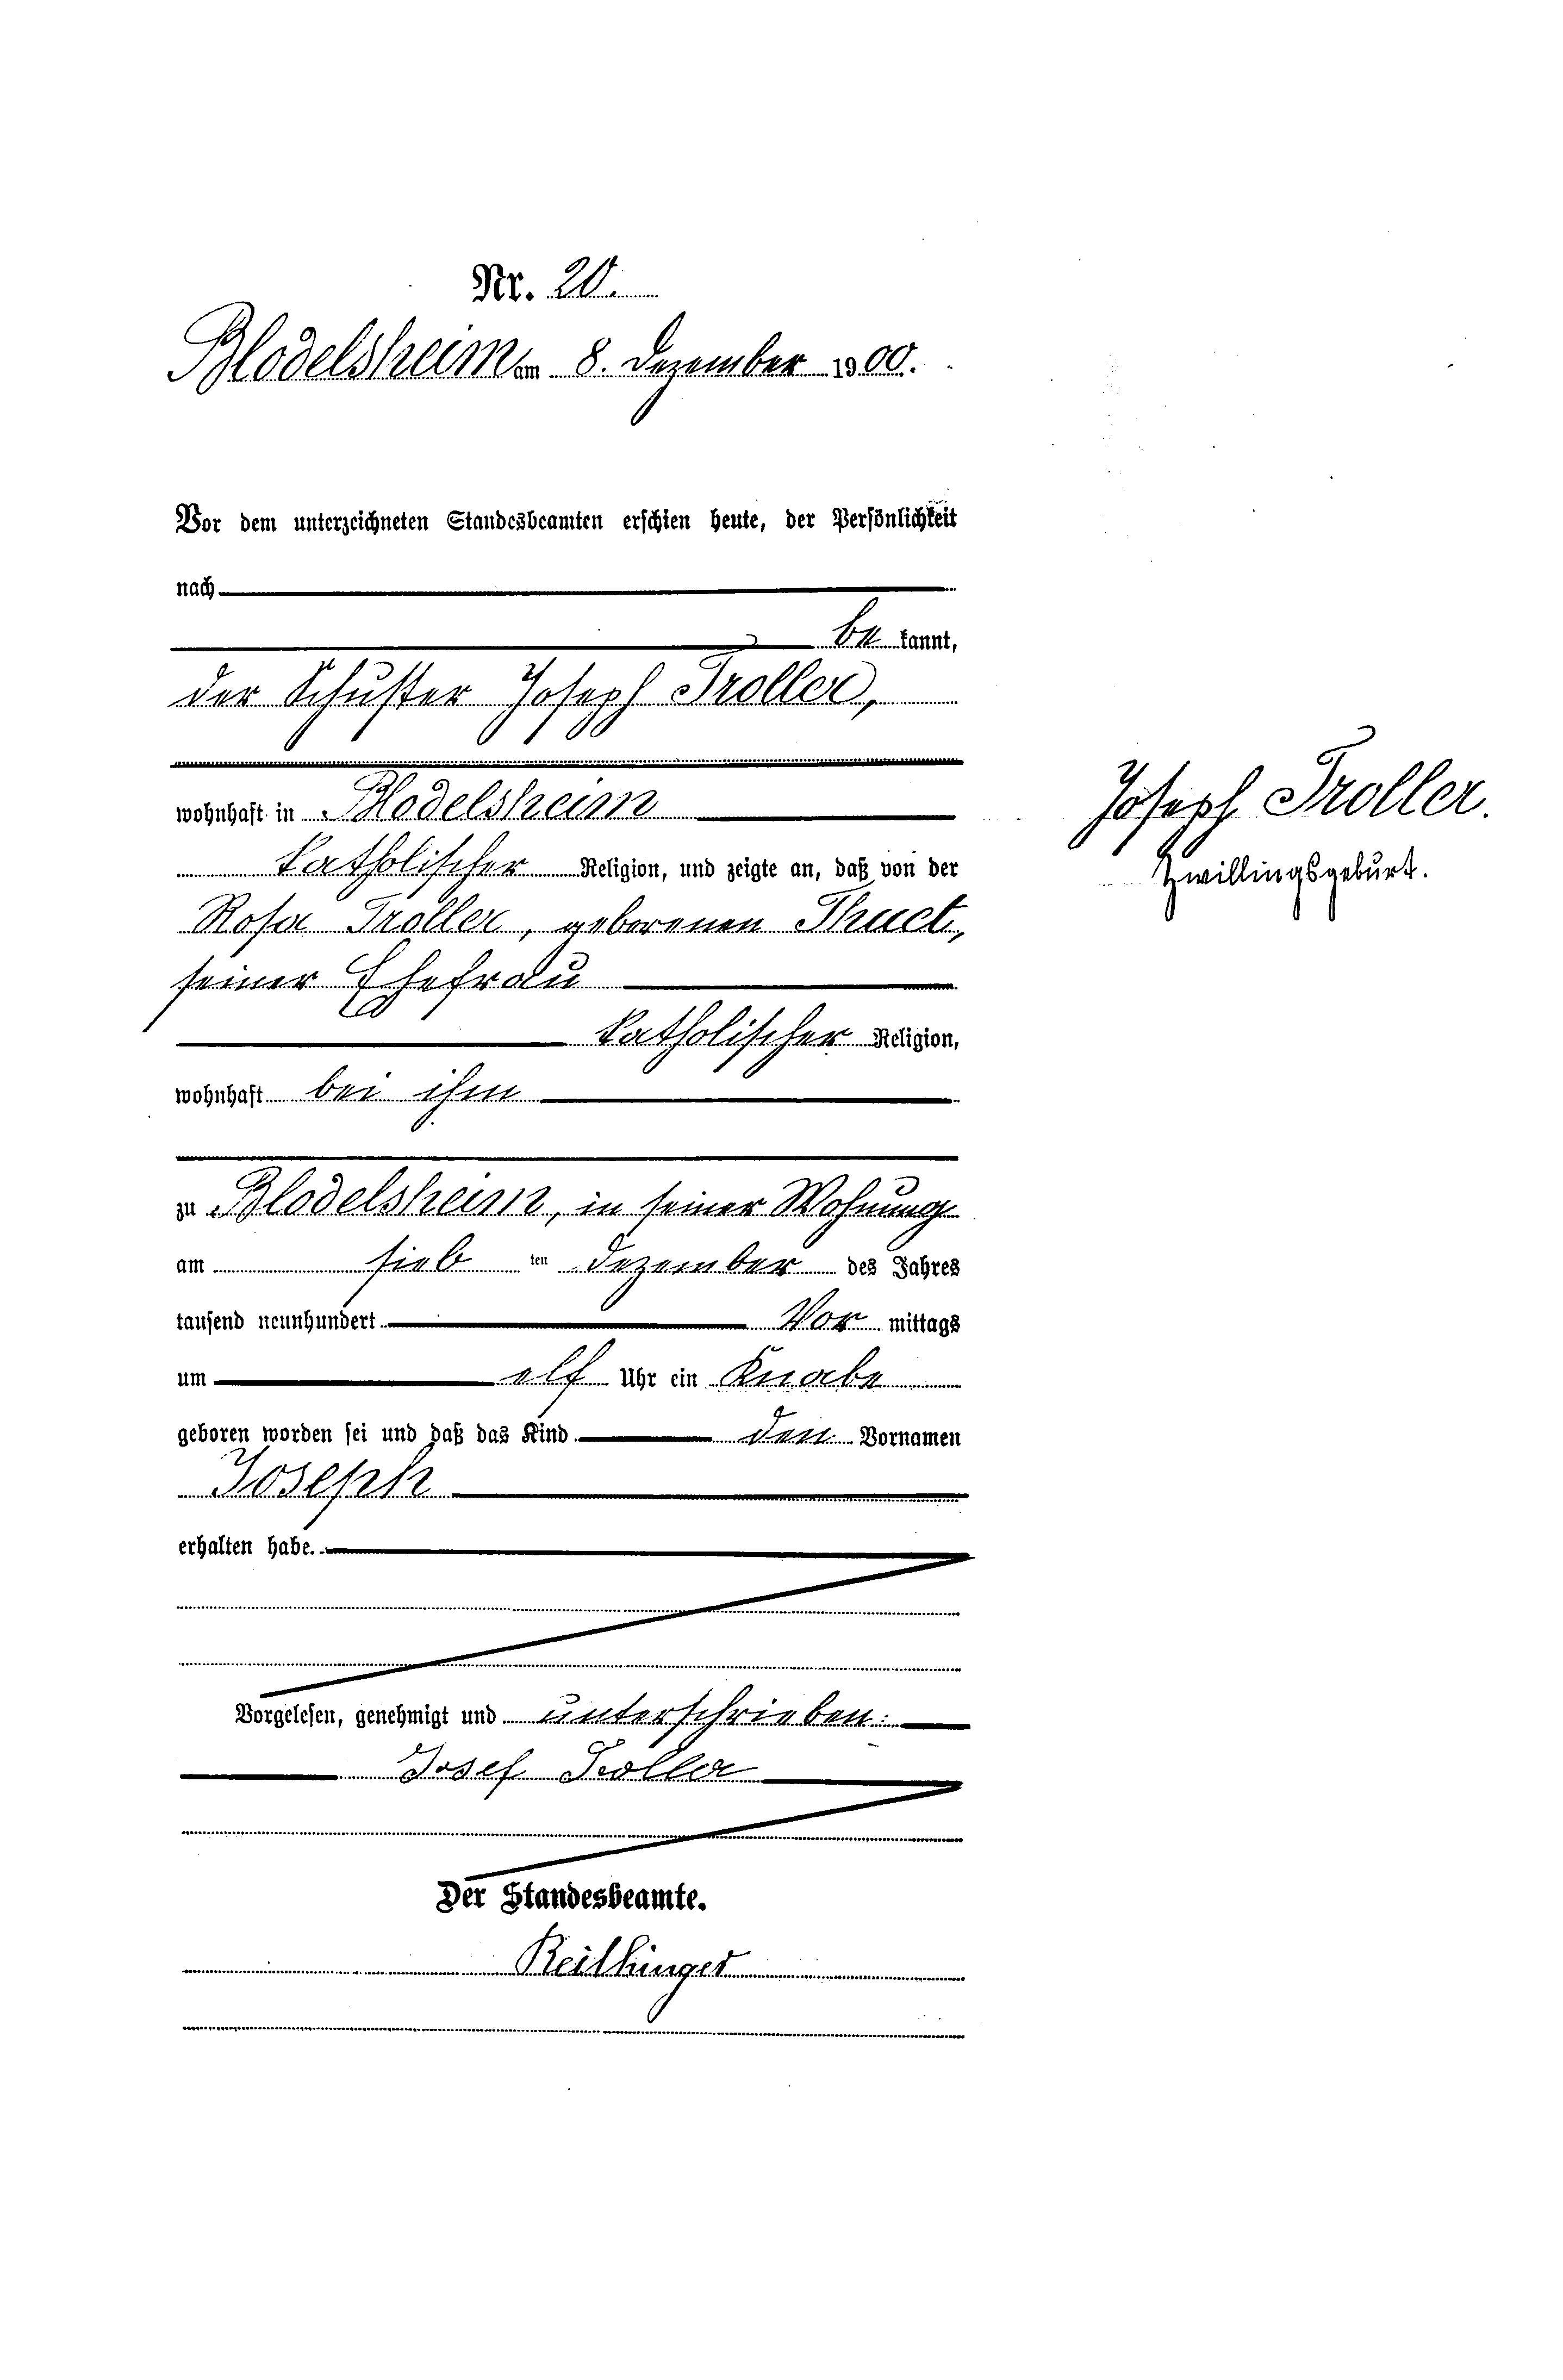 Nr. 20.
Blodelsheim am 8. Dezember 1900.
Vor dem unterzeichneten Standesbeamten erschien heute, der Persönlichkeit
nach
be kannt,
der Schuster Joseph Troller,
wohnhaft in Blodelsheim
katholischer Religion, und zeigte an, daß von der
Rosa Troller, geborenen Thuet,
seiner Ehefrau
katholischer Religion,
wohnhaft bei ihm
zu Blodelsheim, in seiner Wohnung
am sieb ten Dezember des Jahres
tausend neunhundert Vor mittags
um elf Uhr ein Knabe
geboren worden sei und daß das Kind den Vornamen
Joseph
erhalten habe.
Vorgelesen, genehmigt und unterschrieben:
Josef Troller
Der Standesbeamte.
Reithinger
Joseph Troller.
Zwillingsgeburt.